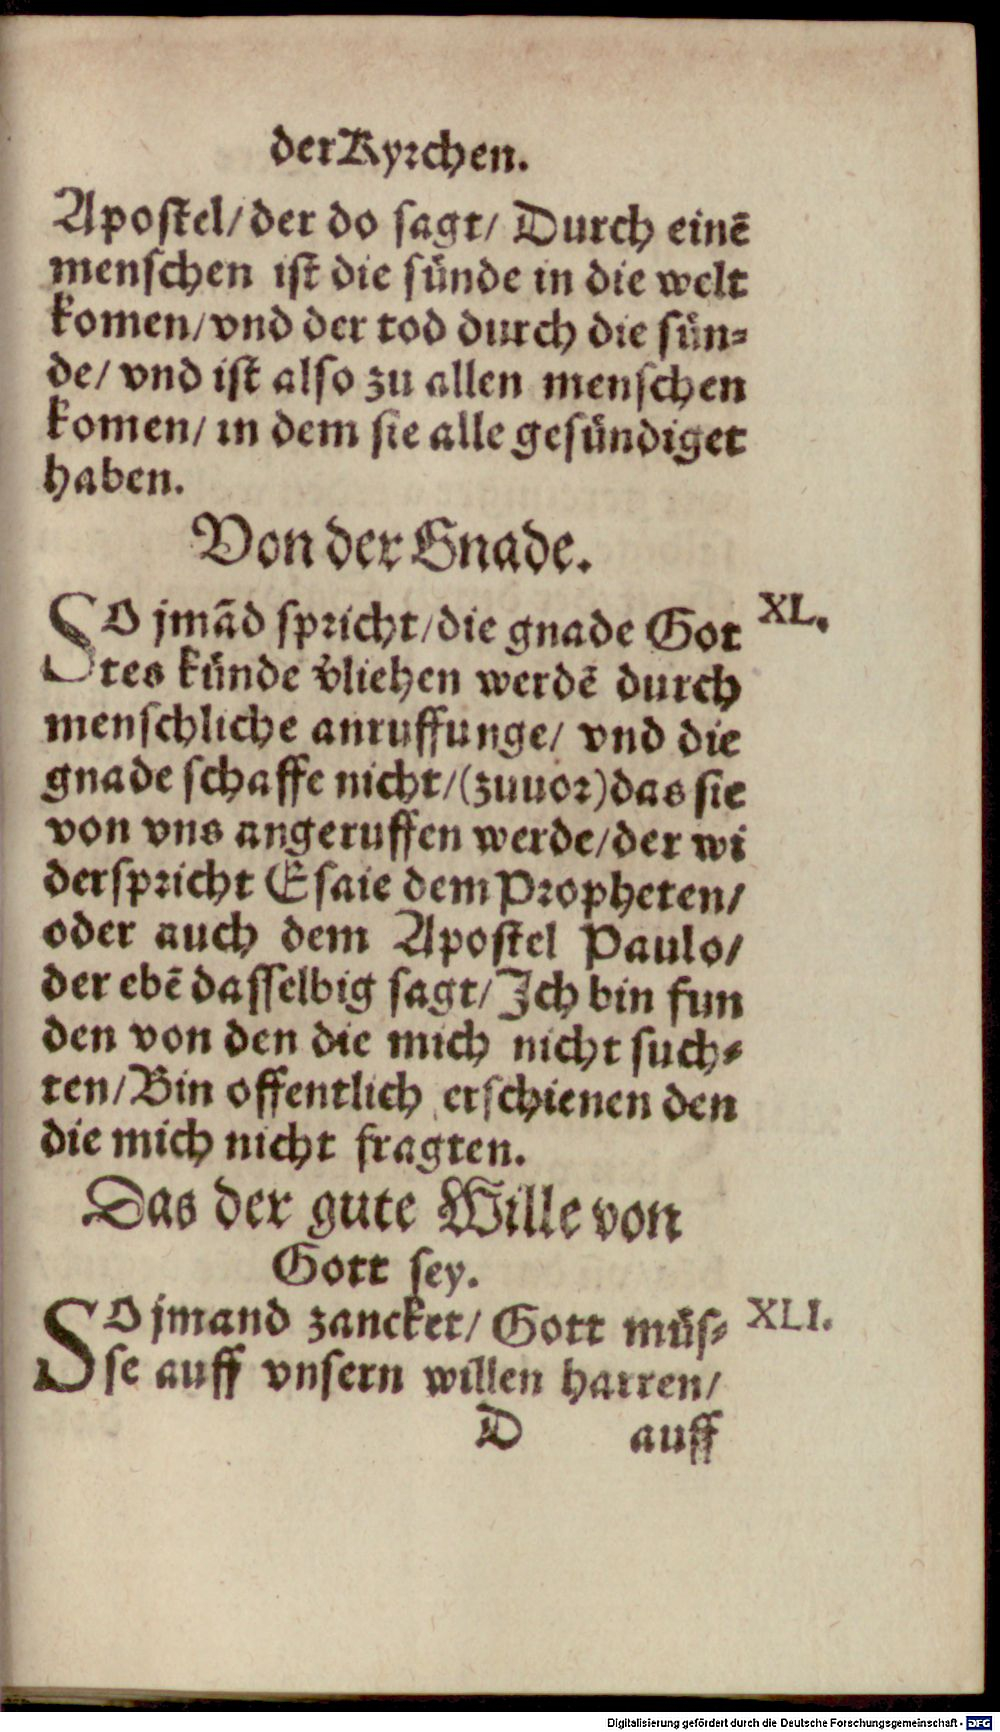 der Kyrchen.
Apostel/ der do sagt/ Durch einē
menschen ist die sünde in die welt
komen/ vnd der tod durch die sün⸗
de/ vnd ist also zu allen menschen
komen/ in dem sie alle gesündiget
haben.
Von der Gnade.
SO jmād spricht/ die gnade Got XL.
tes künde v̄liehen werdē durch
menschliche anruffunge/ vnd die
gnade schaffe nicht/ (zuuor) das sie
von vns angeruffen werde/ der wi
derspricht Esaie dem Propheten/
oder auch dem Apostel Paulo/
der ebē dasselbig sagt/ Ich bin fun
den von den die mich nicht such⸗
ten/ Bin offentlich erschienen den
die mich nicht fragten.
Das der gute Wille von
Gott sey.
SO jmand zancket/ Gott müs⸗ XLI.
se auff vnsern willen harren/
D auff
Digitalisierung gefördert durch die Deutsche Forschungsgemeinschaft - DFG